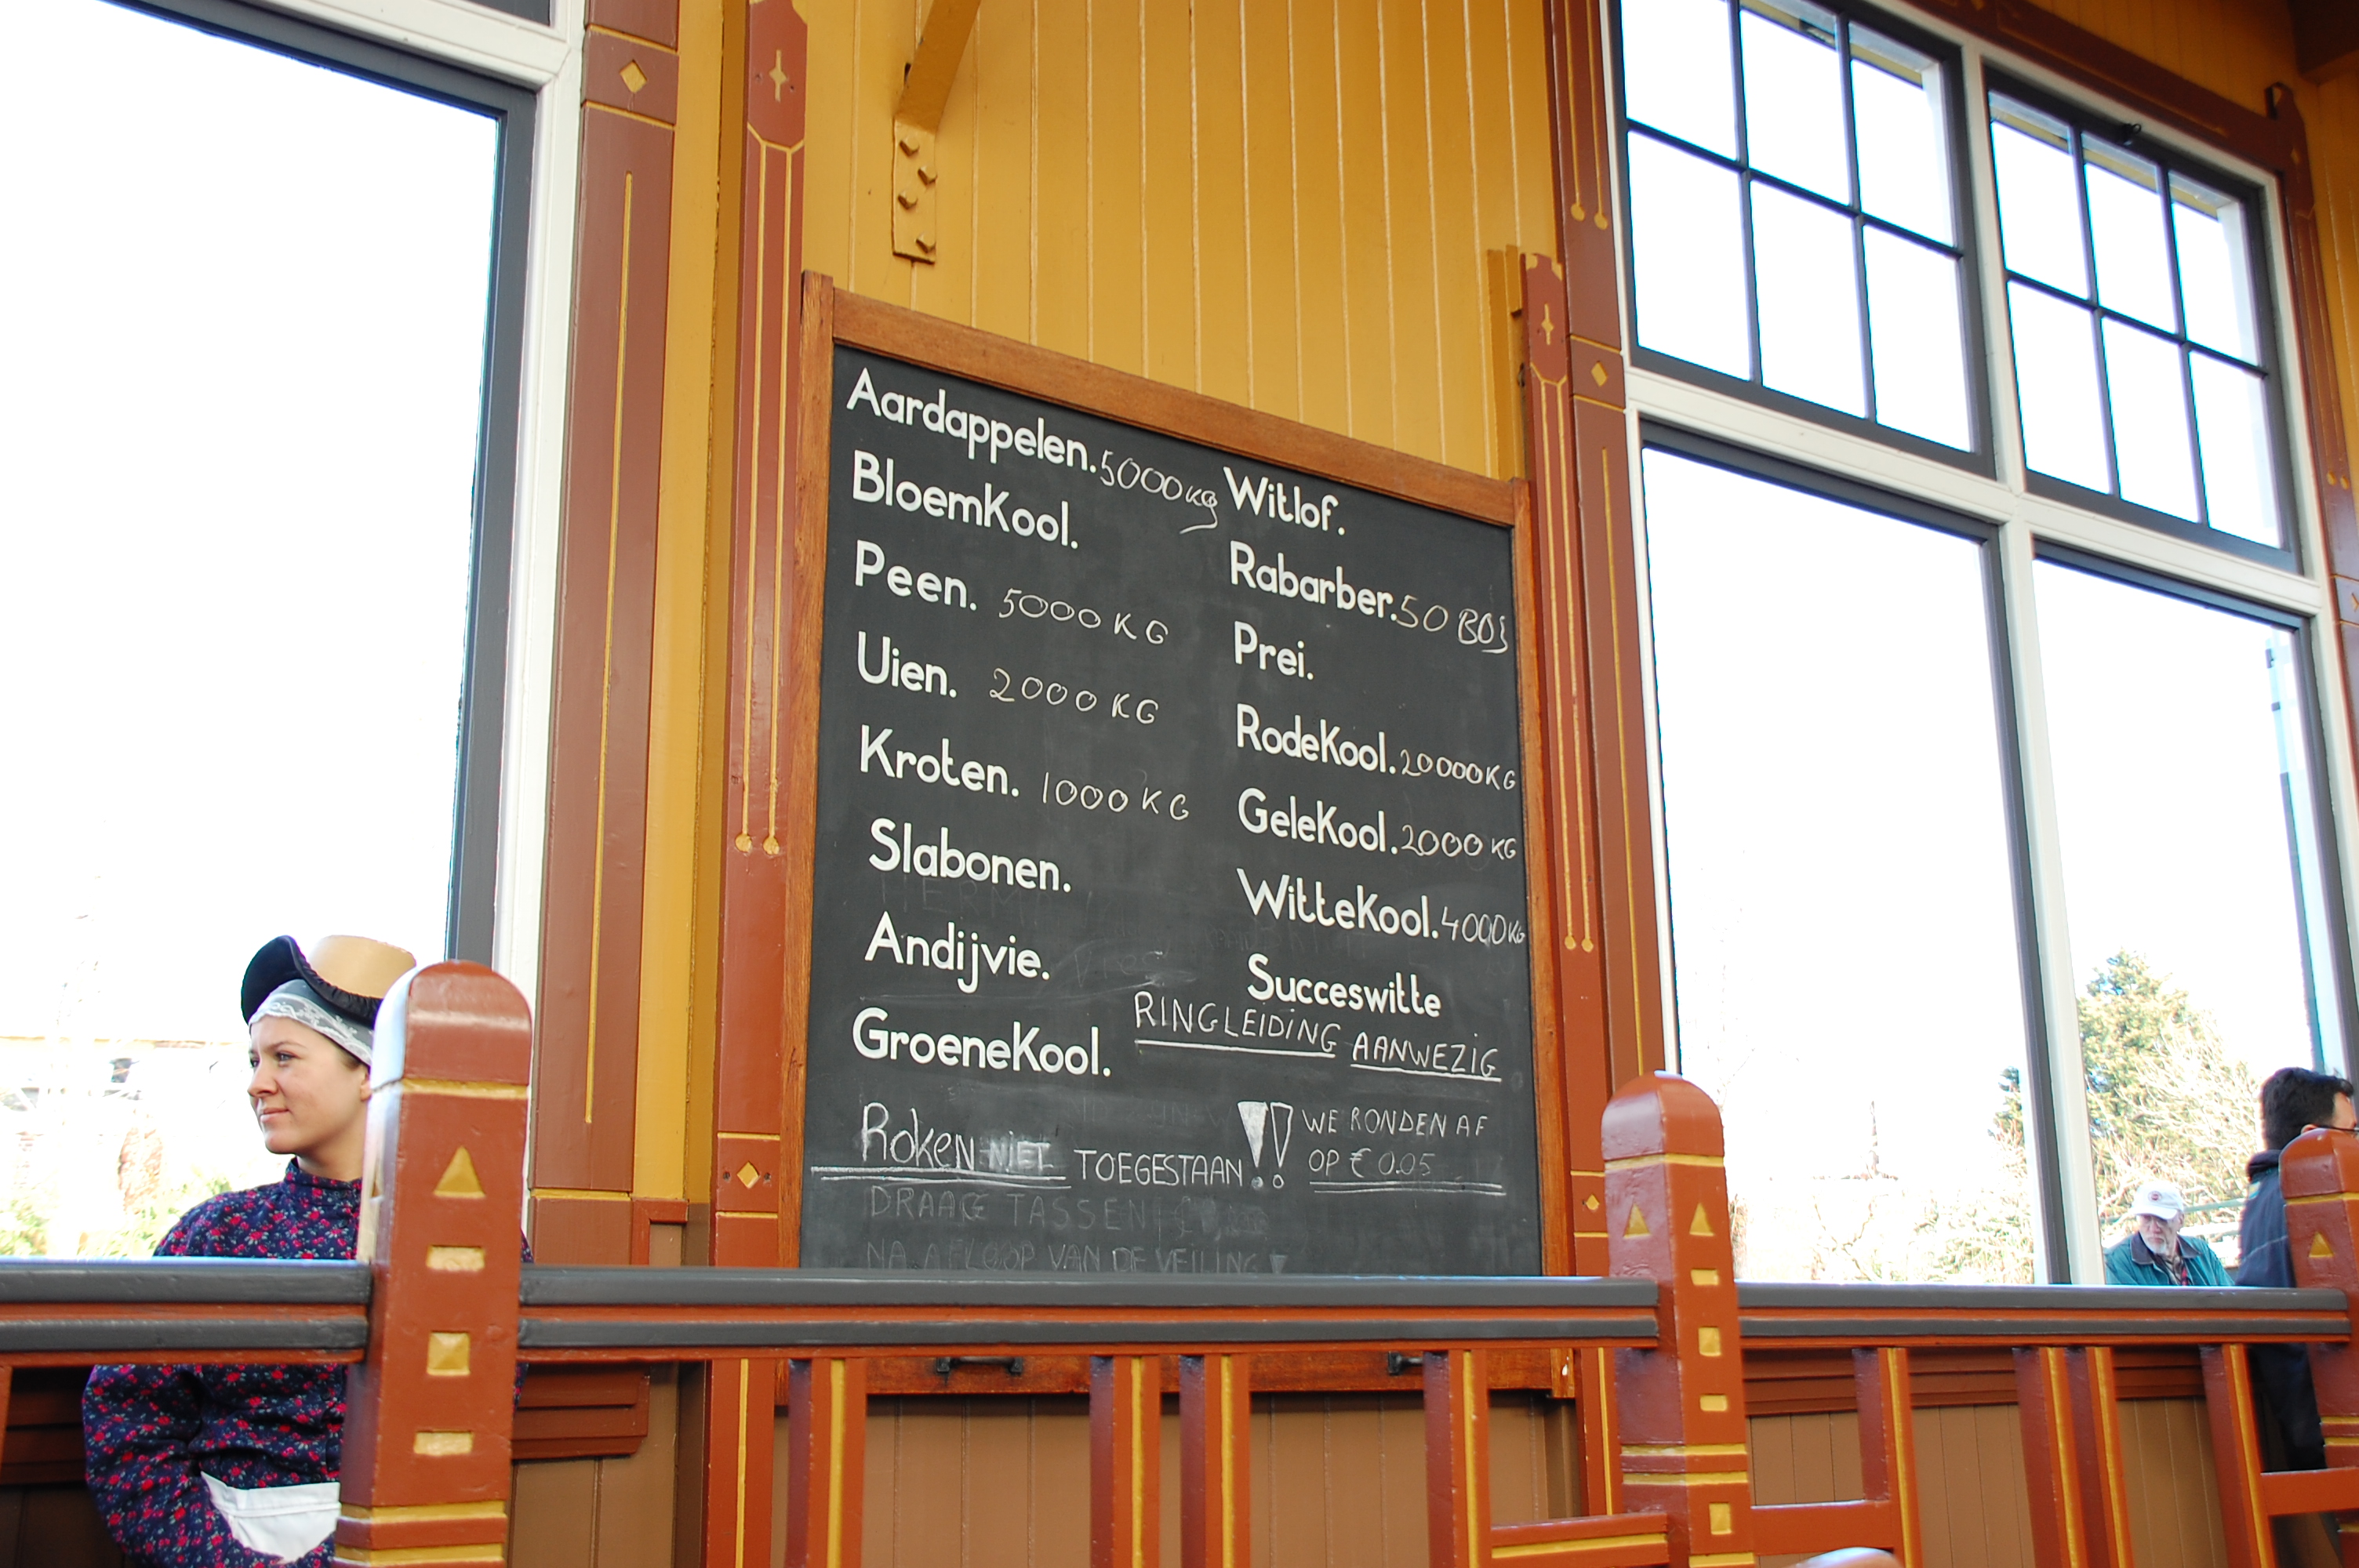 Aardappelen. 5000 kg
BloemKool.
Peen. 5000 KG
Uien. 2000 KG
Kroten. 1000 KG
Slabonen.
Andijvie.
GroeneKool.
Witlof.
Rabarber. 50 BOS
Prei.
RodeKool. 20000 KG
GeleKool. 2000 KG
WitteKool. 4000 KG
Succeswitte
RINGLEIDING AANWEZIG
Roken NIET TOEGESTAAN!!
WE RONDEN AF
OP € 0.05
TASSEN
NA AFLOOP VAN DE VEILING!